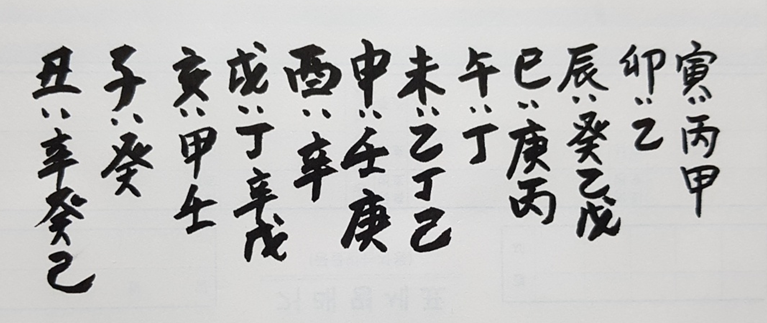 寅:丙甲
卯:乙
辰:癸乙戊
巳:庚丙
午:丁
未:乙丁己
申:壬庚
酉:辛
戌:丁辛戊
亥:甲壬
子:癸
丑:辛癸己